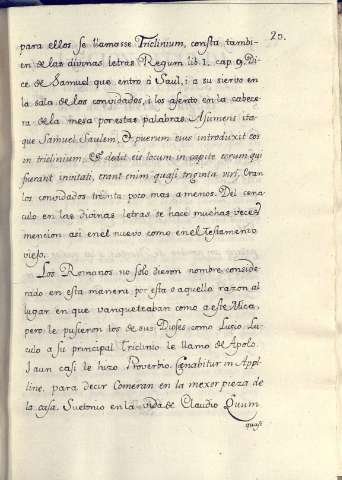 20.
para ellos se llamasse Triclinium, consta tambi-
en de las divinas letras Regum lib. 1. cap. 9. Di-
ce de Samuel que entro à Saul, i a su siervo en
la sala de los convidados, i los asento en la cabece
ra de la mesa por estas palabras. Asumens ita-
que Samuel Saulem, & puerum eius introduxit eos
in triclinium, & dedit eis locum in capite eorum qui
fuerant invitati, erant enim quasi triginta viri. Eran
los convidados treinta poco mas a menos. Del cena
culo en las divinas letras se hace muchas veces
mencion asi en el nuevo como en el testamento
viejo.
Los Romanos no solo dieron nombre conside
rado en esta manera por esta o aquello razon al
lugar en que vanqueteaban como a este Mica,
pero le pusieron los de sus Dioses como Lucio Lu
culo a su principal Triclinio le llamo de Apolo.
I aun casi le hizo Proverbio Cenabitur in Appo-
lline, para decir Comeran en la mexor pieza de
la casa. Suetonio en la vida de Claudio Quum
quasi